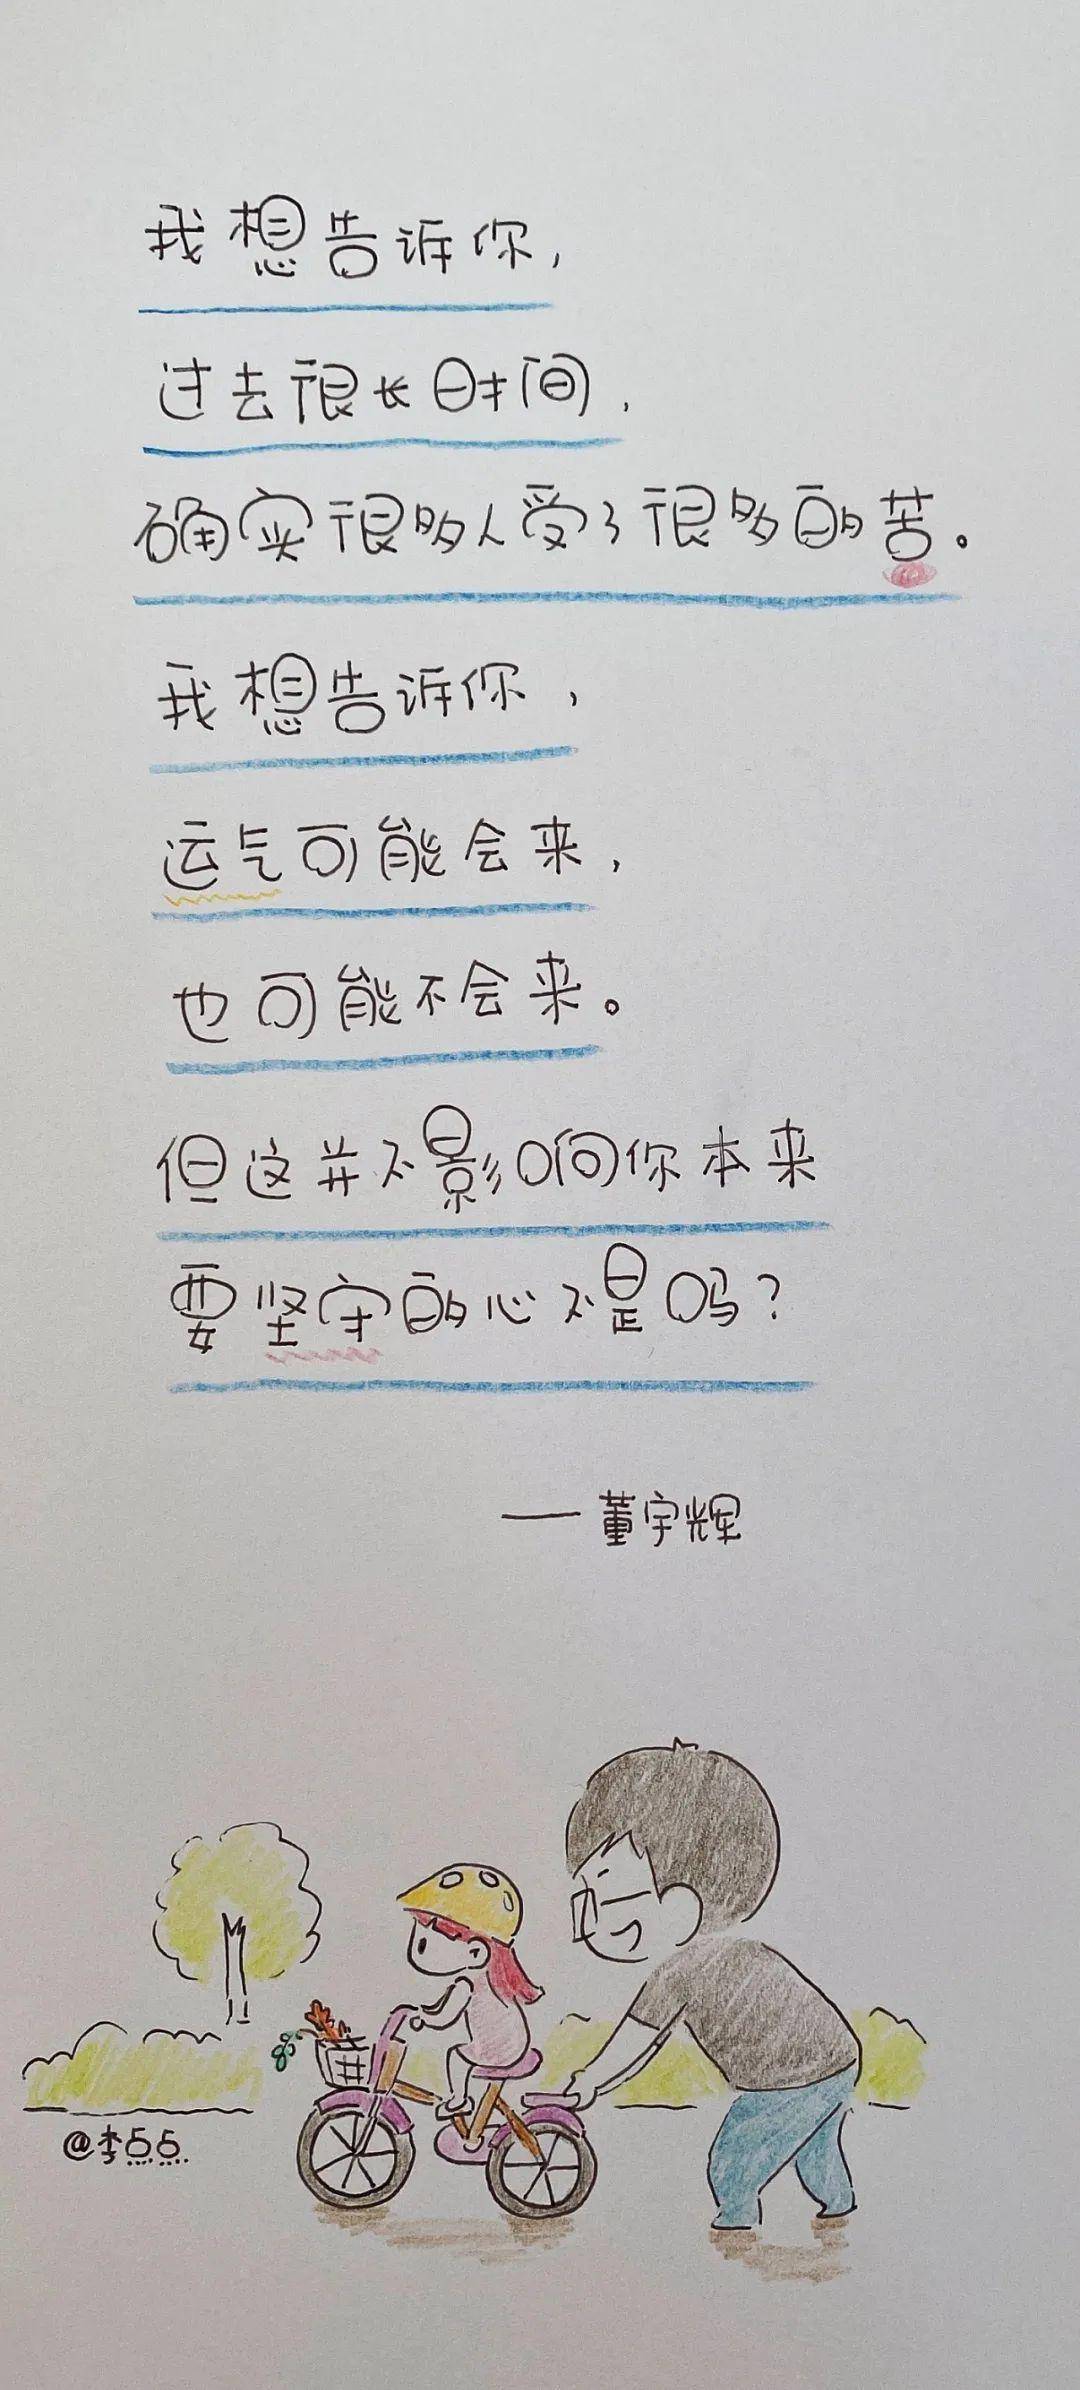 我想告诉你，
过去很长时间，
确实很多人受了很多的苦。
我想告诉你，
运气可能会来，
也可能不会来。
但这并不影响你本来
要坚守的心不是吗？
——董宇辉
@李点点